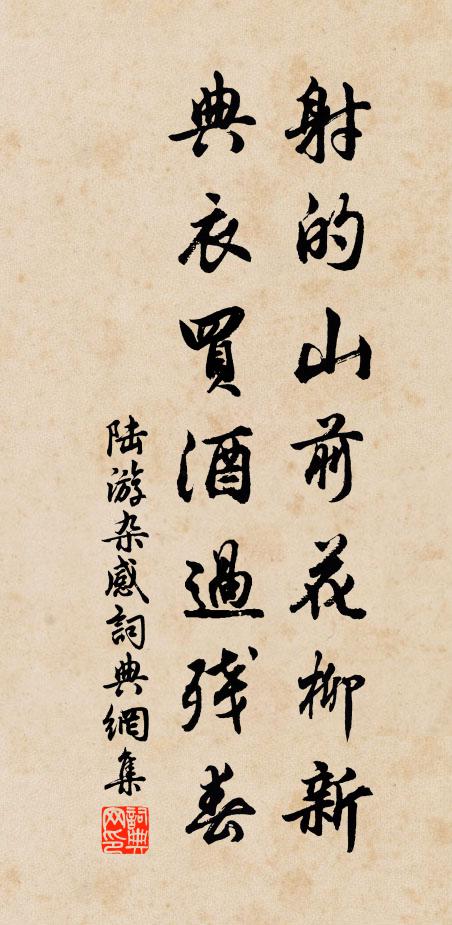 射的山前花柳新
典衣買酒過残春
陆游杂感詞典網集
詞典網印